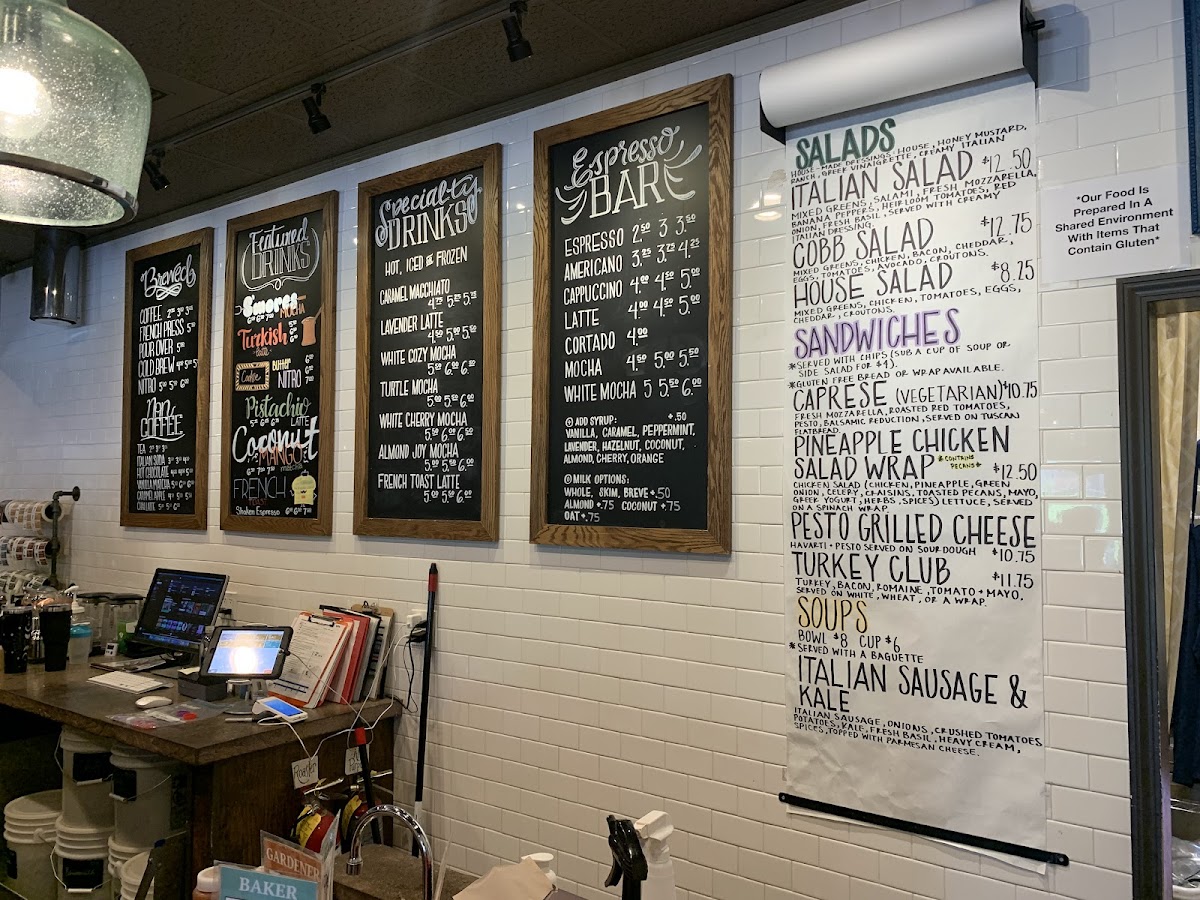 Brewed
COFFEE 2⁵⁰ 3 3⁵⁰
FRENCH PRESS 5⁰⁰
POUR OVER 5⁰⁰
COLD BREW 4 4⁵⁰ 5⁰⁰
NITRO 5⁰⁰ 5⁵⁰ 6⁰⁰
Non
COFFEE
TEA
ITALIAN SODA
HOT CHOCOLATE
VANILLA MATCHA
CARAMEL APPLE
CHAI LATTE
Featured
DRINKS
S'mores
MOCHA
Turkish
latte
Cookie
butter
NITRO
Pistachio
LATTE
Coconut
MANGO
MATCHA
FRENCH
Shaken Espresso
Specialty
DRINKS
HOT, ICED OR FROZEN
CARAMEL MACCHIATO
4.75 5.25 5.50
LAVENDER LATTE
4.50 5.00 5.50
WHITE COZY MOCHA
5.00 5.50 6.00
TURTLE MOCHA
5.00 5.50 6.00
WHITE CHERRY MOCHA
5.50 6.00 6.50
ALMOND JOY MOCHA
5.00 5.50 6.00
FRENCH TOAST LATTE
5.00 5.50 6.00
Espresso
BAR
ESPRESSO 2.50 3 3.50
AMERICANO 3.25 3.75 4.25
CAPPUCCINO 4.00 4.50 5.00
LATTE 4.00 4.50 5.00
CORTADO 4.00
MOCHA 4.50 5.00 5.50
WHITE MOCHA 5 5.50 6.00
ADD SYRUP: +.50
VANILLA, CARAMEL, PEPPERMINT,
LAVENDER, HAZELNUT, COCONUT,
ALMOND, CHERRY, ORANGE
MILK OPTIONS:
WHOLE, SKIM, BREVE +.50
ALMOND +.75 COCONUT +.75
OAT +.75
SALADS
HOUSE-MADE DRESSINGS: HOUSE, HONEY MUSTARD,
RANCH, GREEK VINAIGRETTE, CREAMY ITALIAN
ITALIAN SALAD $12.50
MIXED GREENS, SALAMI, FRESH MOZZARELLA,
BANANA PEPPERS, HEIRLOOM TOMATOES, RED
ONION, FRESH BASIL, SERVED WITH CREAMY
ITALIAN DRESSING.
COBB SALAD $12.75
MIXED GREENS, CHICKEN, BACON, CHEDDAR,
EGGS, TOMATOES, AVOCADO, CROUTONS.
HOUSE SALAD $8.25
MIXED GREENS, CHICKEN, TOMATOES, EGGS,
CHEDDAR, CROUTONS.
SANDWICHES
*SERVED WITH CHIPS (SUB A CUP OF SOUP OR
SIDE SALAD FOR $4).
*GLUTEN FREE BREAD OR WRAP AVAILABLE.
CAPRESE (VEGETARIAN) $10.75
FRESH MOZZARELLA, ROASTED RED TOMATOES,
PESTO, BALSAMIC REDUCTION, SERVED ON TUSCAN
FLATBREAD.
PINEAPPLE CHICKEN
SALAD WRAP *CONTAINS PECANS* $12.50
CHICKEN SALAD (CHICKEN, PINEAPPLE, GREEN
ONION, CELERY, CRAISINS, TOASTED PECANS, MAYO,
GREEK YOGURT, HERBS, SPICES) LETTUCE, SERVED
ON A SPINACH WRAP.
PESTO GRILLED CHEESE
HAVARTI + PESTO SERVED ON SOURDOUGH $10.75
TURKEY CLUB $11.75
TURKEY, BACON, ROMAINE, TOMATO + MAYO.
SERVED ON WHITE, WHEAT, OR A WRAP.
SOUPS
BOWL $8 CUP $6
*SERVED WITH A BAGUETTE
ITALIAN SAUSAGE &
KALE
ITALIAN SAUSAGE, ONIONS, CRUSHED TOMATOES
POTATOES, KALE, FRESH BASIL, HEAVY CREAM,
SPICES, TOPPED WITH PARMESAN CHEESE.
*Our Food Is
Prepared In A
Shared Environment
With Items That
Contain Gluten*
GARDENER
BAKER